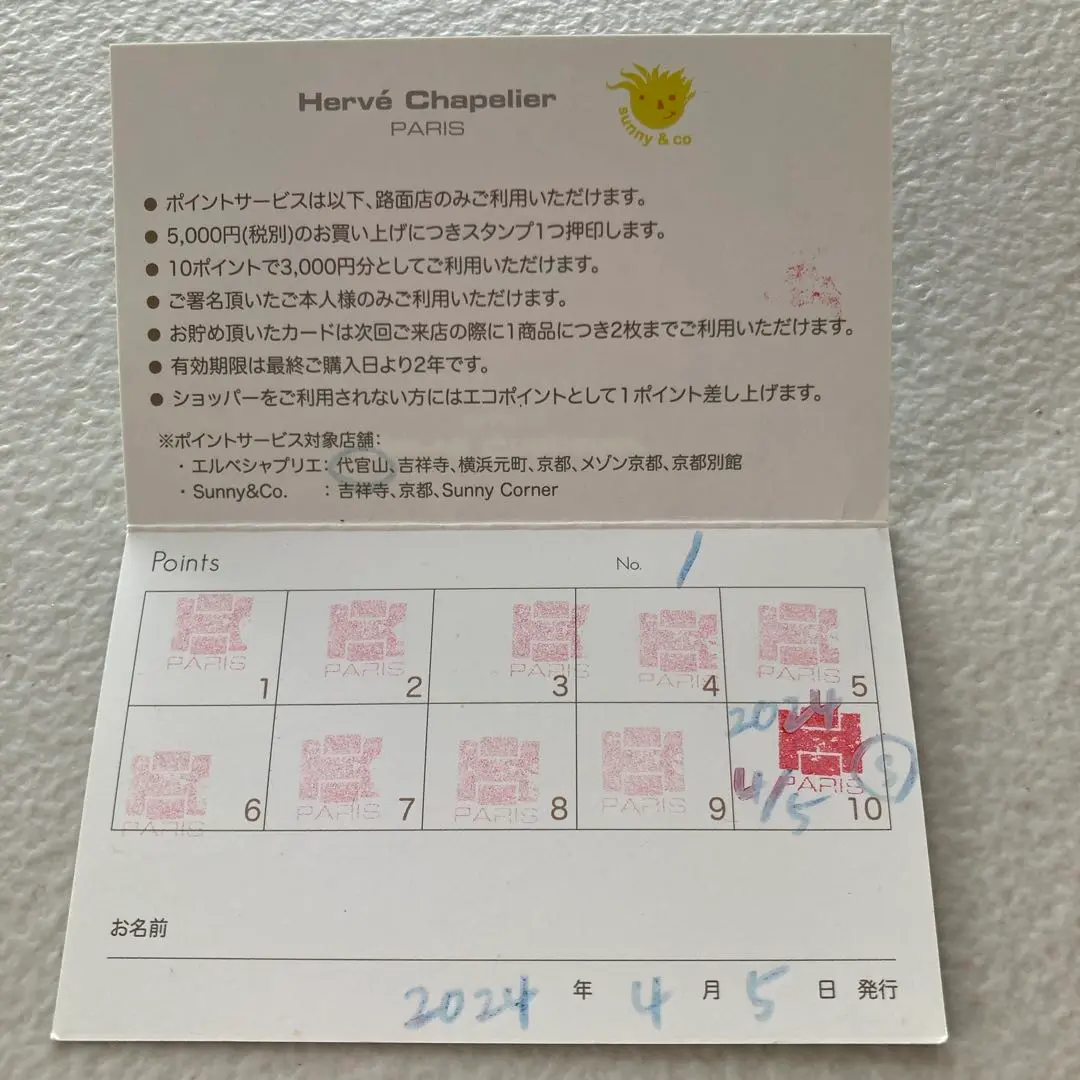 Hervé Chapelier
PARIS
sunny & co
● ポイントサービスは以下、路面店のみご利用いただけます。
● 5,000円(税別)のお買い上げにつきスタンプ1つ押印します。
● 10ポイントで3,000円分としてご利用いただけます。
● ご署名頂いたご本人様のみご利用いただけます。
● お貯め頂いたカードは次回ご来店の際に1商品につき2枚までご利用いただけます。
● 有効期限は最終ご購入日より2年です。
● ショッパーをご利用されない方にはエコポイントとして1ポイント差し上げます。
※ポイントサービス対象店舗:
・エルベシャプリエ: 代官山、吉祥寺、横浜元町、京都、メゾン京都、京都別館
・Sunny&Co. : 吉祥寺、京都、Sunny Corner
Points No. 1
PARIS PARIS PARIS PARIS PARIS
1 2 3 4 5
2024
PARIS PARIS PARIS PARIS PARIS
4/5
6 7 8 9 10
お名前
2024 年 4 月 5 日 発行